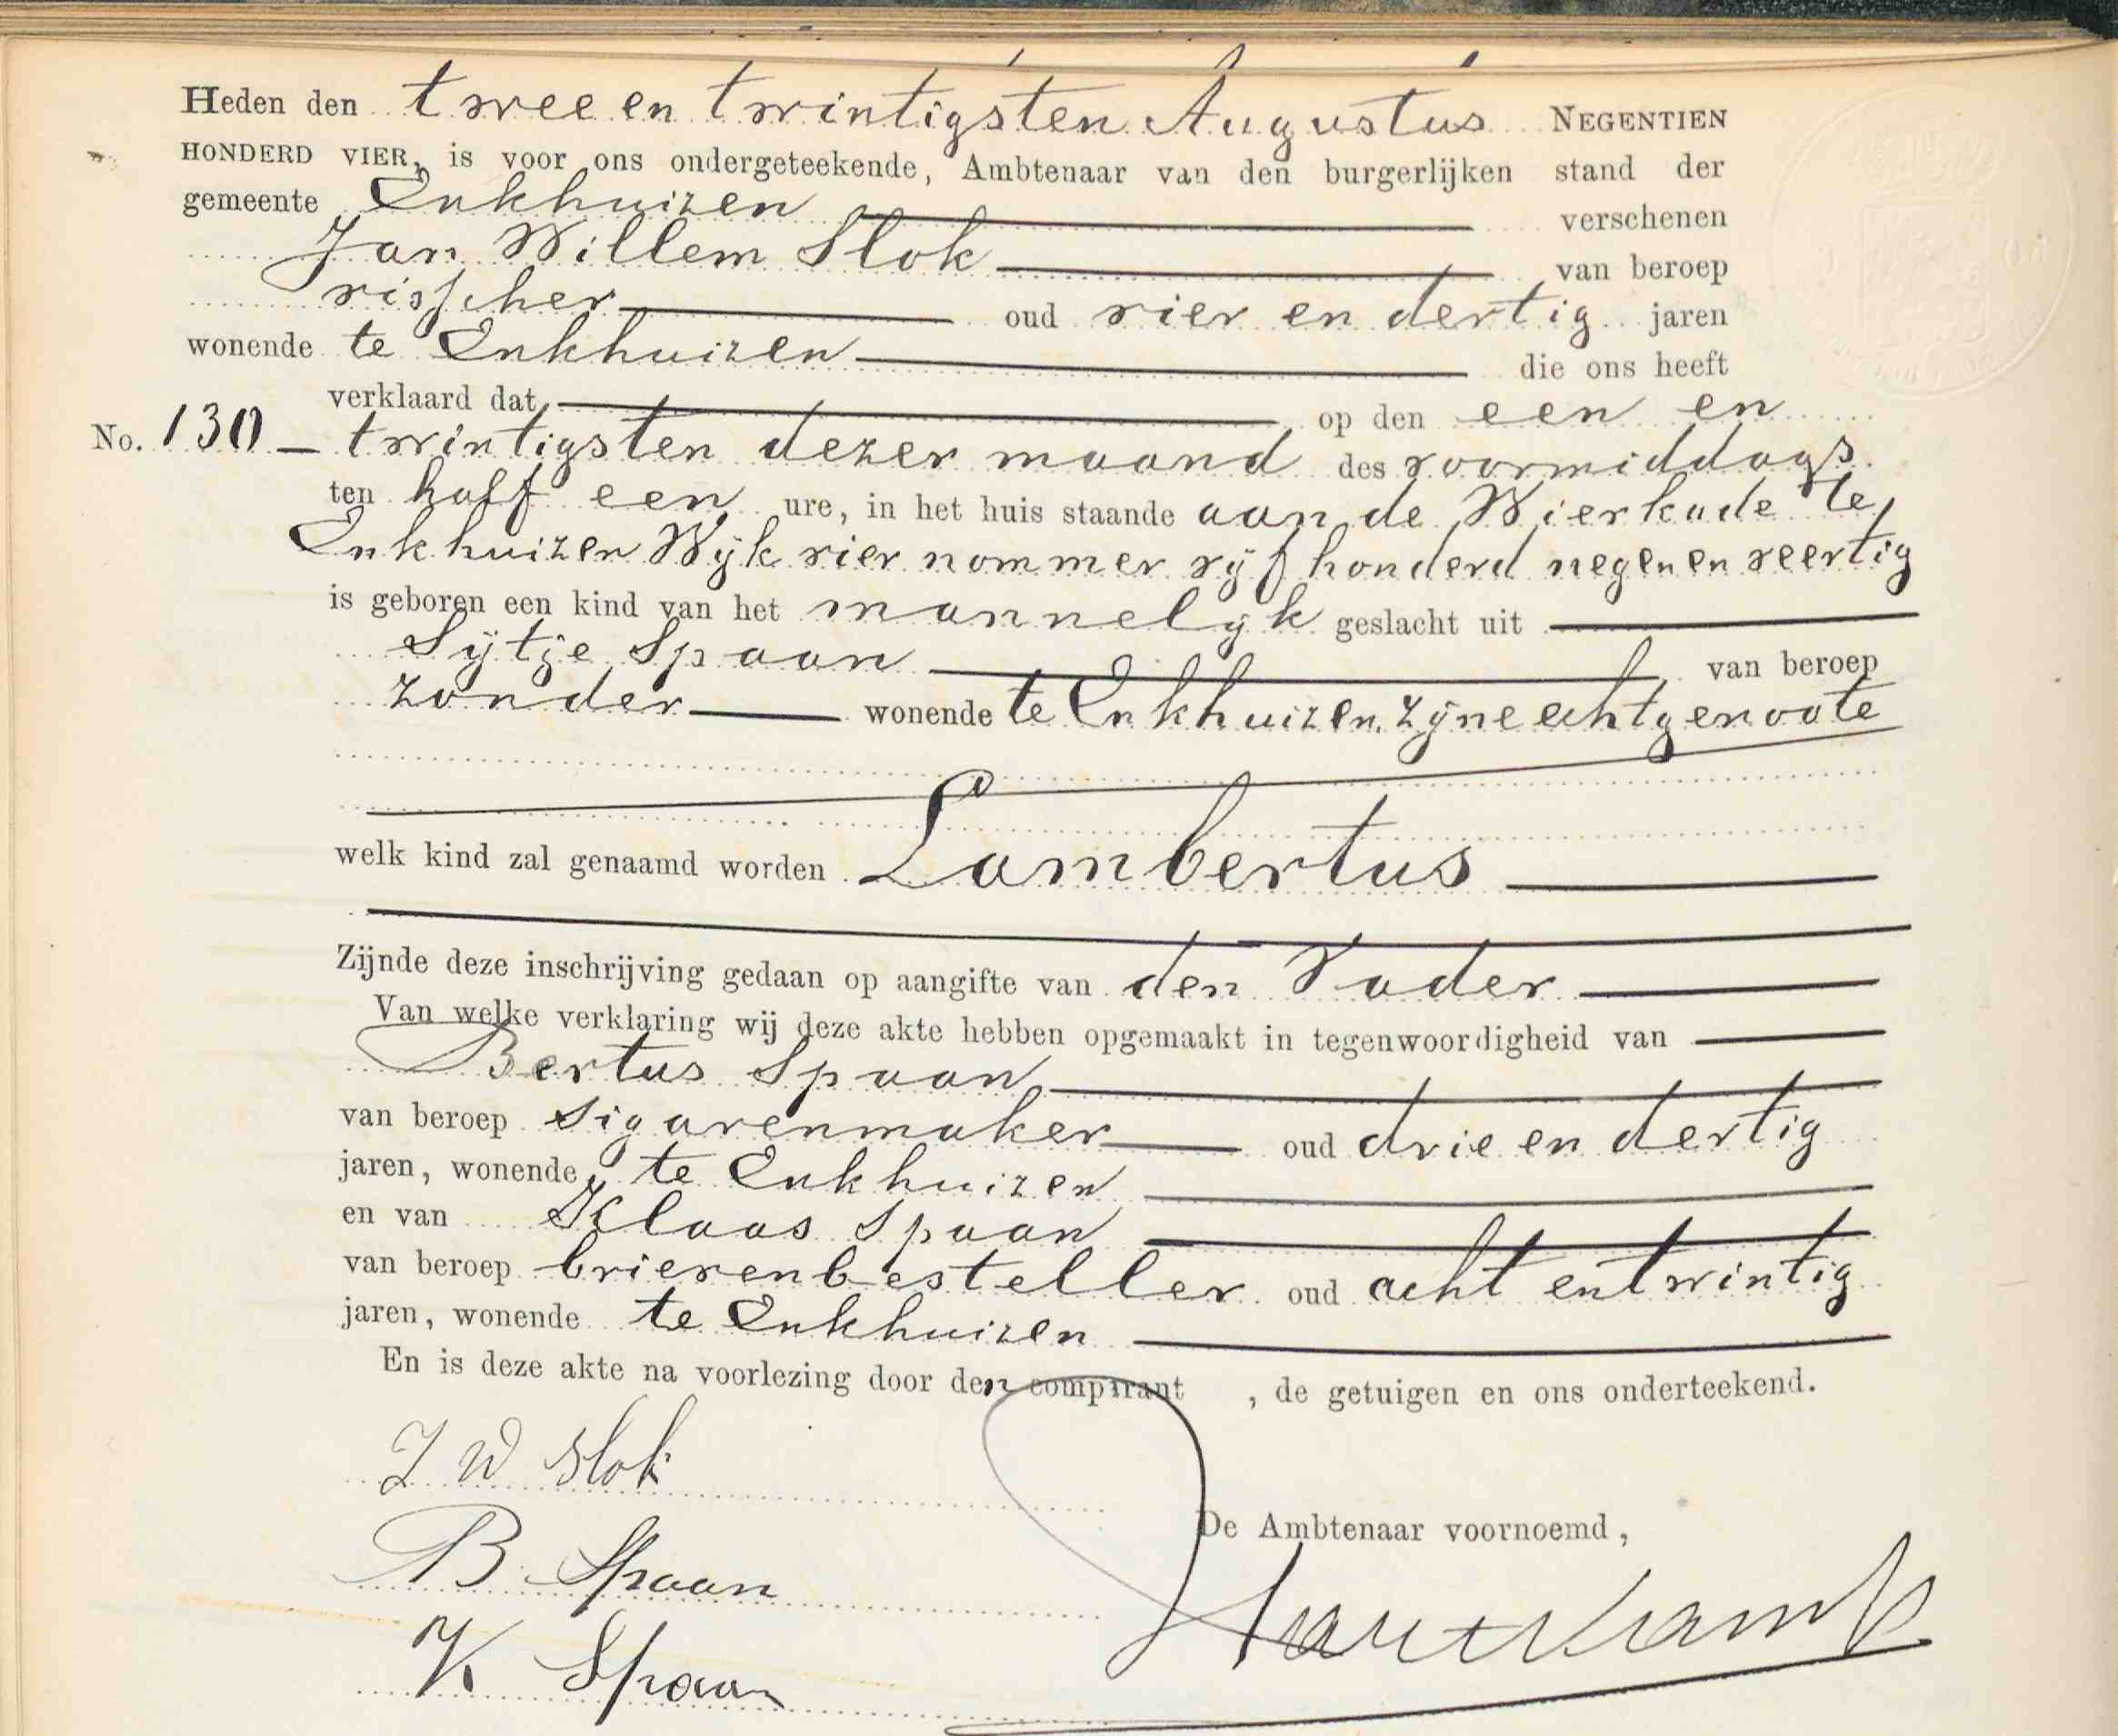 Heden den twee en twintigsten Augustus NEGENTIEN
HONDERD VIER, is voor ons ondergeteekende, Ambtenaar van den burgerlijken stand der
gemeente Enkhuizen verschenen
Jan Willem Slok van beroep
visscher oud vier en dertig jaren
wonende te Enkhuizen die ons heeft
verklaard dat op den een en
No. 130 twintigsten dezer maand des voormiddags
ten half een ure, in het huis staande aan de Wierkade te
Enkhuizen Wijk vier nommer vijf honderd negen en veertig
is geboren een kind van het mannelijk geslacht uit
Sijtje Spaan van beroep
zonder wonende te Enkhuizen, zijne echtgenoote
welk kind zal genaamd worden Lambertus
Zijnde deze inschrijving gedaan op aangifte van den Vader
Van welke verklaring wij deze akte hebben opgemaakt in tegenwoordigheid van
Bertus Spaan
van beroep Sigarenmaker oud drie en dertig
jaren, wonende te Enkhuizen
en van Klaas Spaan
van beroep brievenbesteller oud acht en twintig
jaren, wonende te Enkhuizen
En is deze akte na voorlezing door den comparant , de getuigen en ons onderteekend.
J W Slok
De Ambtenaar voornoemd,
B. Spaan
K Spaan